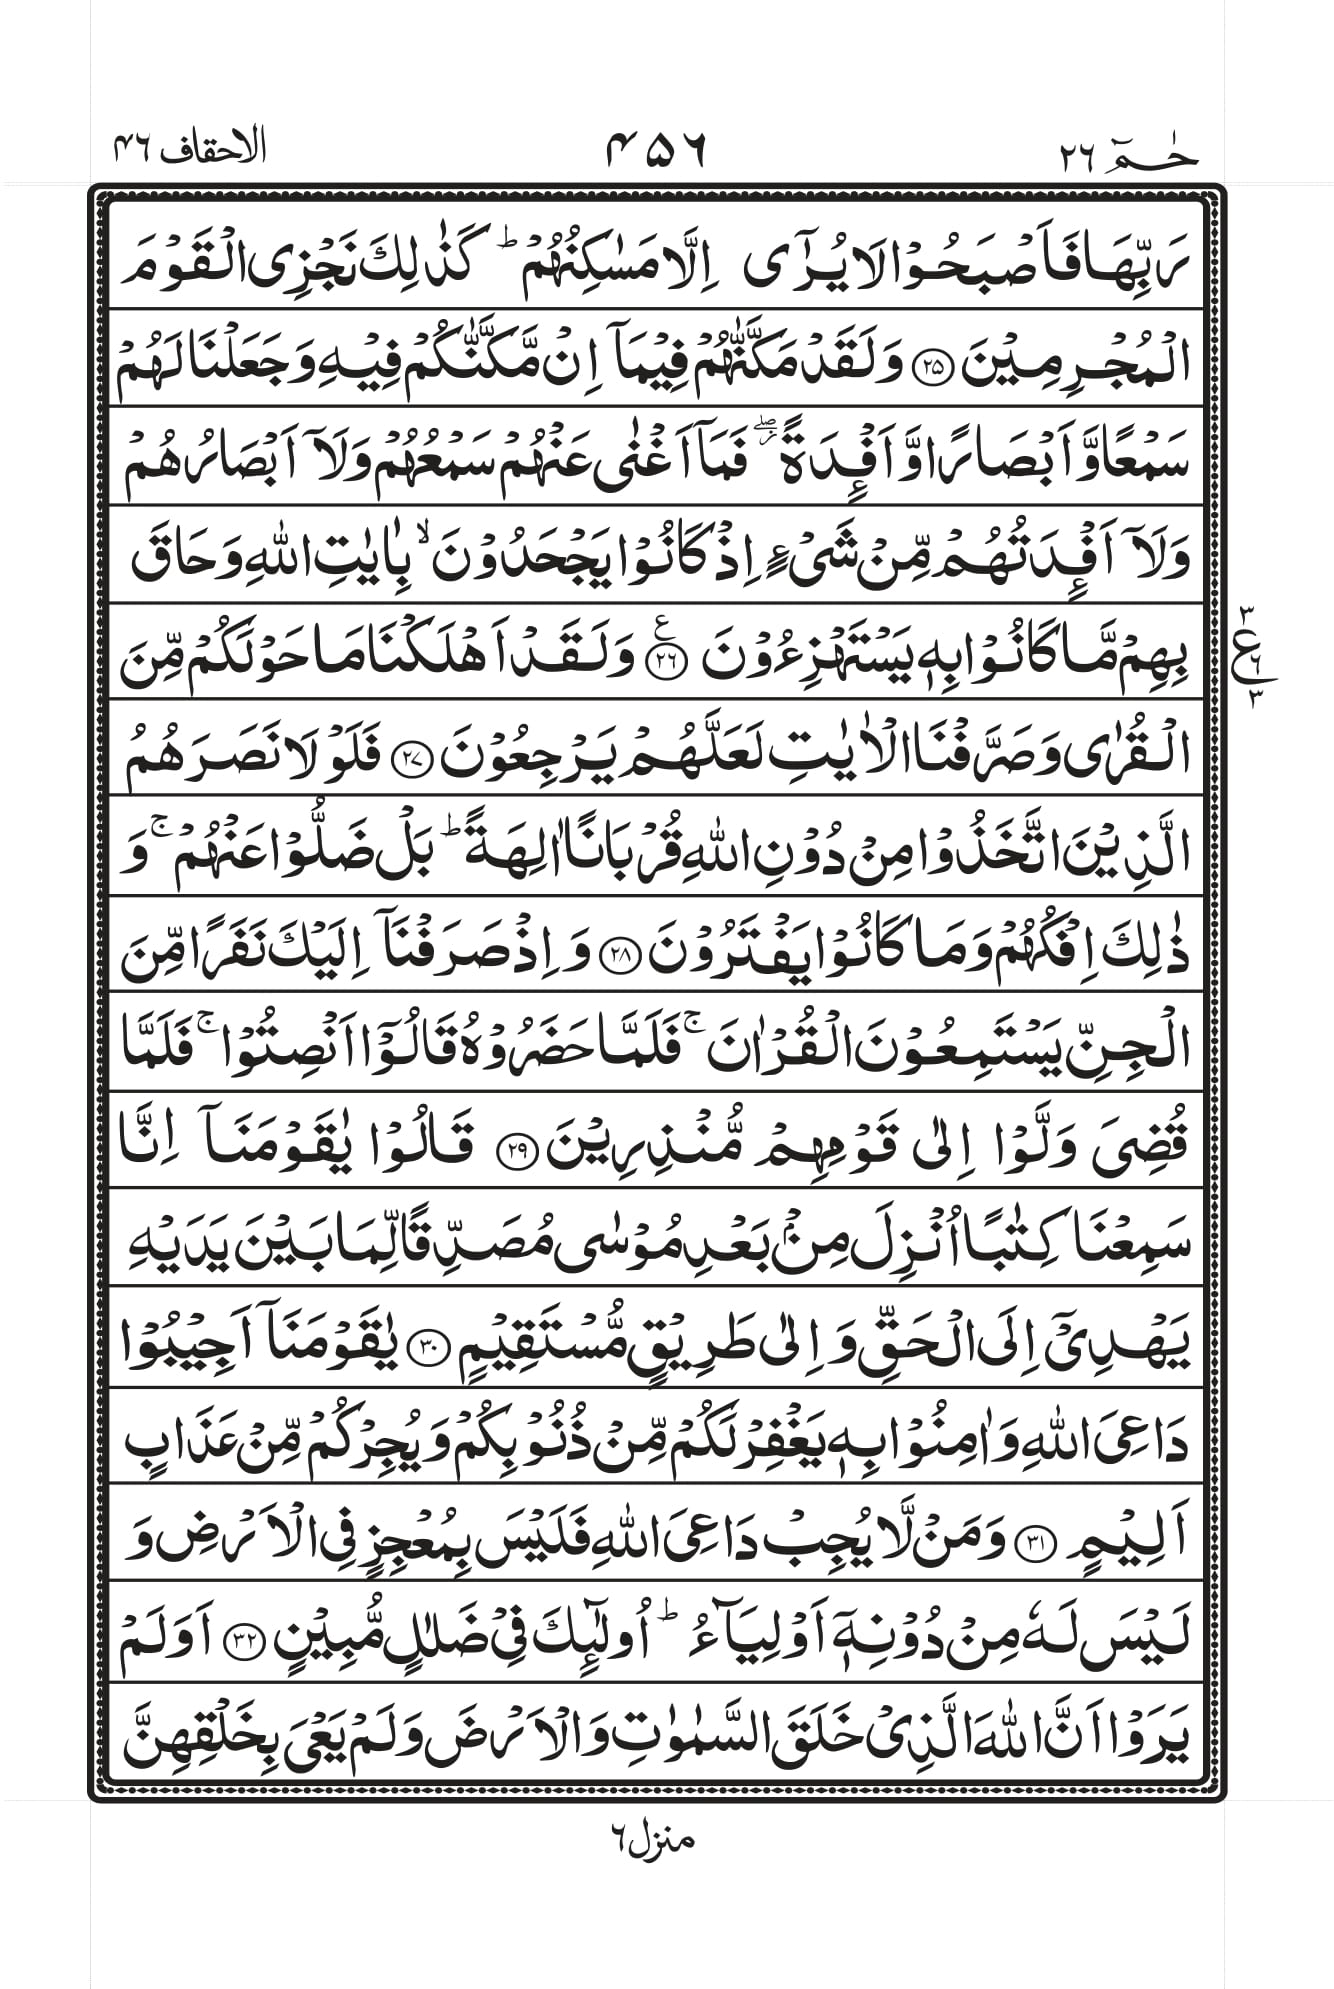 حٰمٓ ٢٦ ۴۵۶ الاحقاف ۴۶
رَبِّهَا فَاَصْبَحُوْا لَا يُرٰٓى اِلَّا مَسٰكِنُهُمْ ؕ كَذٰلِكَ نَجْزِى الْقَوْمَ
الْمُجْرِمِيْنَ ۝۲۵ وَلَقَدْ مَكَّنّٰهُمْ فِيْمَآ اِنْ مَّكَّنّٰكُمْ فِيْهِ وَجَعَلْنَا لَهُمْ
سَمْعًا وَّاَبْصَارًا وَّاَفْـِٕدَةً ۖؗ فَمَآ اَغْنٰى عَنْهُمْ سَمْعُهُمْ وَلَآ اَبْصَارُهُمْ
وَلَآ اَفْـِٕدَتُهُمْ مِّنْ شَىْءٍ اِذْ كَانُوْا يَجْحَدُوْنَ ۙ بِاٰيٰتِ اللّٰهِ وَحَاقَ
بِهِمْ مَّا كَانُوْا بِهٖ يَسْتَهْزِءُوْنَ ۝۲۶ ع وَلَقَدْ اَهْلَكْنَا مَا حَوْلَكُمْ مِّنَ
٣ ع ٦ ٣
الْقُرٰى وَصَرَّفْنَا الْاٰيٰتِ لَعَلَّهُمْ يَرْجِعُوْنَ ۝۲۷ فَلَوْ لَا نَصَرَهُمُ
الَّذِيْنَ اتَّخَذُوْا مِنْ دُوْنِ اللّٰهِ قُرْبَانًا اٰلِهَةً ؕ بَلْ ضَلُّوْا عَنْهُمْ ۚ وَ
ذٰلِكَ اِفْكُهُمْ وَمَا كَانُوْا يَفْتَرُوْنَ ۝۲۸ وَاِذْ صَرَفْنَآ اِلَيْكَ نَفَرًا مِّنَ
الْجِنِّ يَسْتَمِعُوْنَ الْقُرْاٰنَ ۚ فَلَمَّا حَضَرُوْهُ قَالُوْٓا اَنْصِتُوْا ۚ فَلَمَّا
قُضِىَ وَلَّوْا اِلٰى قَوْمِهِمْ مُّنْذِرِيْنَ ۝۲۹ قَالُوْا يٰقَوْمَنَآ اِنَّا
سَمِعْنَا كِتٰبًا اُنْزِلَ مِنْۢ بَعْدِ مُوْسٰى مُصَدِّقًا لِّمَا بَيْنَ يَدَيْهِ
يَهْدِىْٓ اِلَى الْحَقِّ وَاِلٰى طَرِيْقٍ مُّسْتَقِيْمٍ ۝۳۰ يٰقَوْمَنَآ اَجِيْبُوْا
دَاعِىَ اللّٰهِ وَاٰمِنُوْا بِهٖ يَغْفِرْ لَكُمْ مِّنْ ذُنُوْبِكُمْ وَيُجِرْكُمْ مِّنْ عَذَابٍ
اَلِيْمٍ ۝۳۱ وَمَنْ لَّا يُجِبْ دَاعِىَ اللّٰهِ فَلَيْسَ بِمُعْجِزٍ فِى الْاَرْضِ وَ
لَيْسَ لَهٗ مِنْ دُوْنِهٖٓ اَوْلِيَآءُ ؕ اُولٰٓئِكَ فِىْ ضَلٰلٍ مُّبِيْنٍ ۝۳۲ اَوَلَمْ
يَرَوْا اَنَّ اللّٰهَ الَّذِىْ خَلَقَ السَّمٰوٰتِ وَالْاَرْضَ وَلَمْ يَعْىَ بِخَلْقِهِنَّ
منزل ٦